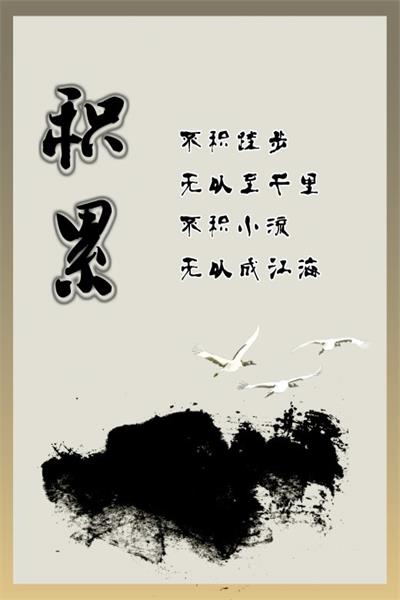 积累
不积跬步
无以至千里
不积小流
无以成江海